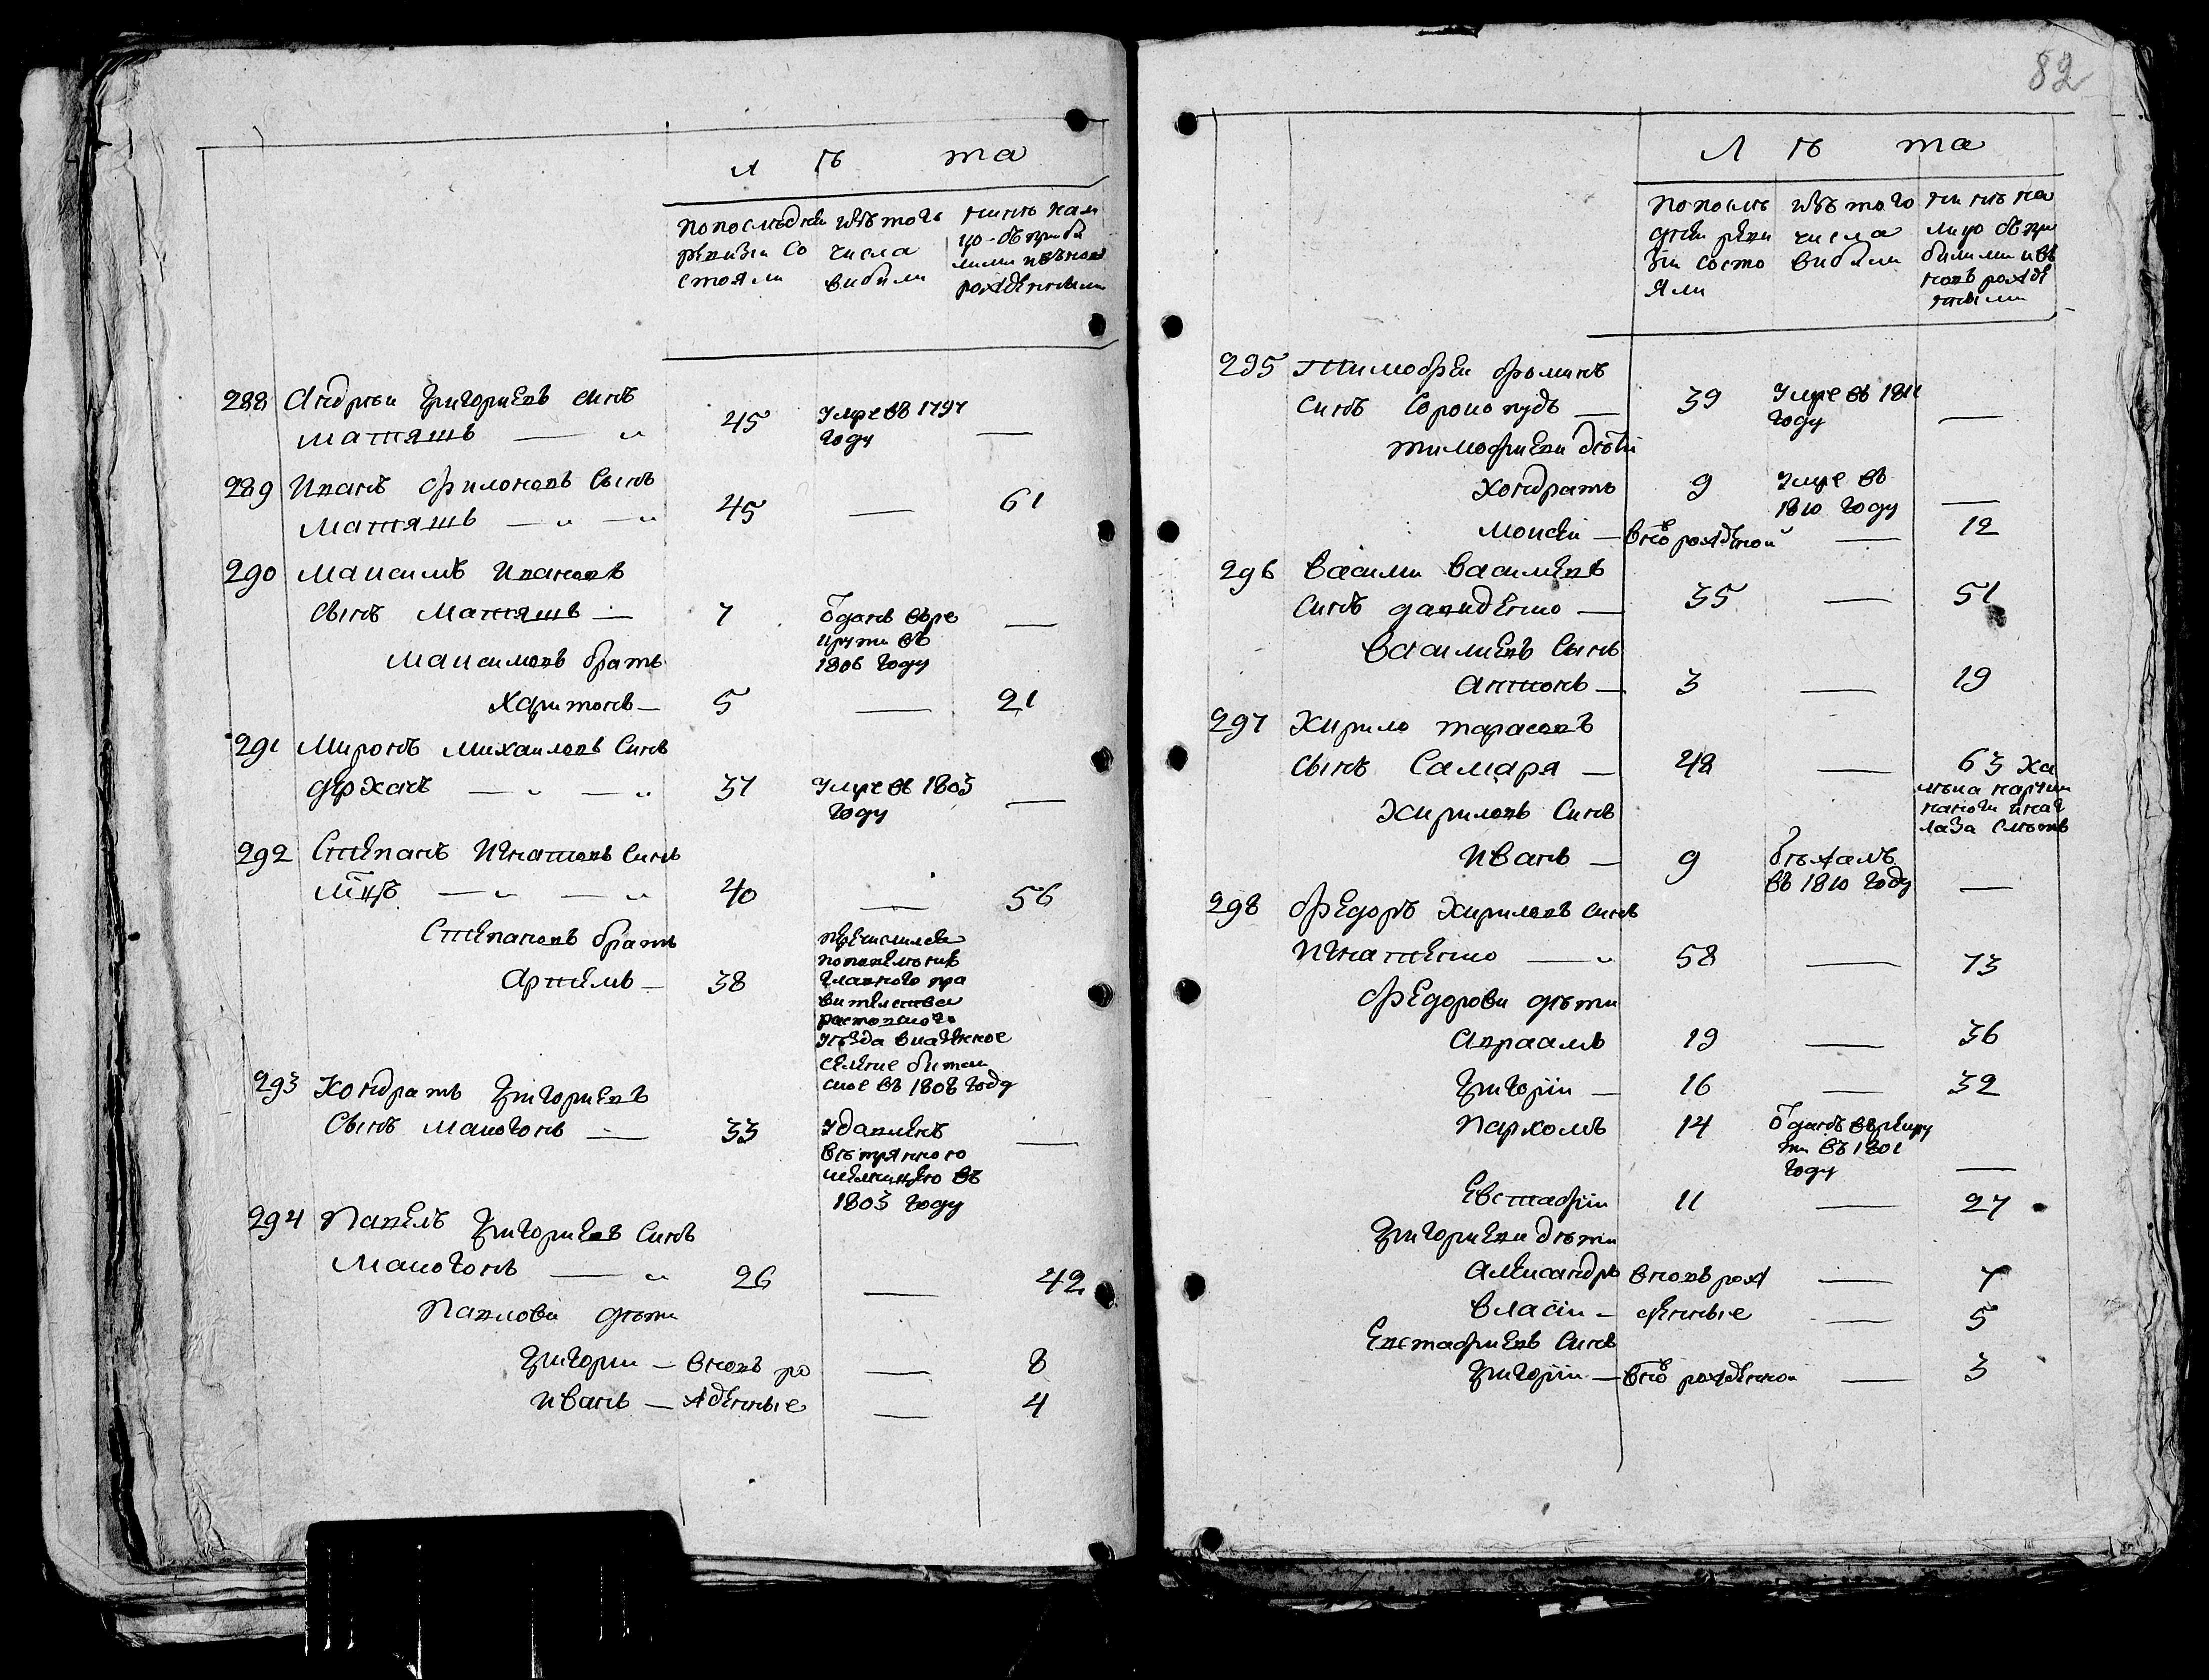 Л ѣ та
По последней ревизiи состояли
изъ того числа выбыли
нынѣ на лицо съ прибылыми и вновь рожденными
288 Андрѣй Григориевъ синъ
Маташъ — 45 Умре въ 1797 году —
289 Иванъ Филоновъ Сынъ
Маташъ — 45 — 61
290 Максимъ Ивановъ
сынъ Маташъ — 7 Отданъ въ рекруты въ 1806 году —
Максимовъ братъ
Харитонъ — 5 — 21
291 Миронъ Михаиловъ Синъ
Держанъ — 37 Умре въ 1803 году —
292 Степанъ Игнатовъ Синъ
— 40 — 56
Степановъ братъ
Артемъ — 38 Перечислився по повелению главного правителства ростовского уезда в казенное селение в 1808 году
293 Кондратъ Григориевъ
Сынъ Макогонъ — 33 Удавленъ ветрянною мелницею въ 1803 году —
294 Павелъ Григориевъ Синъ
Макогонъ — 26 — 42
Павлови дѣти
Григории — вновь ро — 8
Иванъ — жденные — 4
82
Л ѣ та
По последней ревизiи состояли
изъ того числа выбыли
нынѣ на лицо съ прибылими и въновь рожденными
295 Тимофѣи Фоминъ
синъ Сорокопудъ — 39 Умре въ 1811 году —
Тимофиеви дѣти
Кондратъ 9 Умре въ 1810 году —
Моисеи — вновъ рожденной — 12
296 Васили Василиевъ
синъ Давиденко — 35 — 51
Василиевъ Сынъ
Антонъ — 3 — 19
297 Кирило Тарасовъ
сынъ Самаря — 48 — 63
Кириловъ Синъ
Иванъ — 9 бѣжалъ въ 1810 году —
298 Федоръ Кириловъ Синъ
Игнатенко — 58 — 73
Федорови дѣти
Авраамъ 19 — 36
Григорiи — 16 — 32
Пархомъ 14 Отданъ въ рекрути въ 1801 году —
Евстафiи 11 — 27
Григориеви дѣти
Александръ вновъ рож — 7
Власiи — денные — 5
Евстафиевъ Синъ
Григорiи — вновъ рожденнои — 3